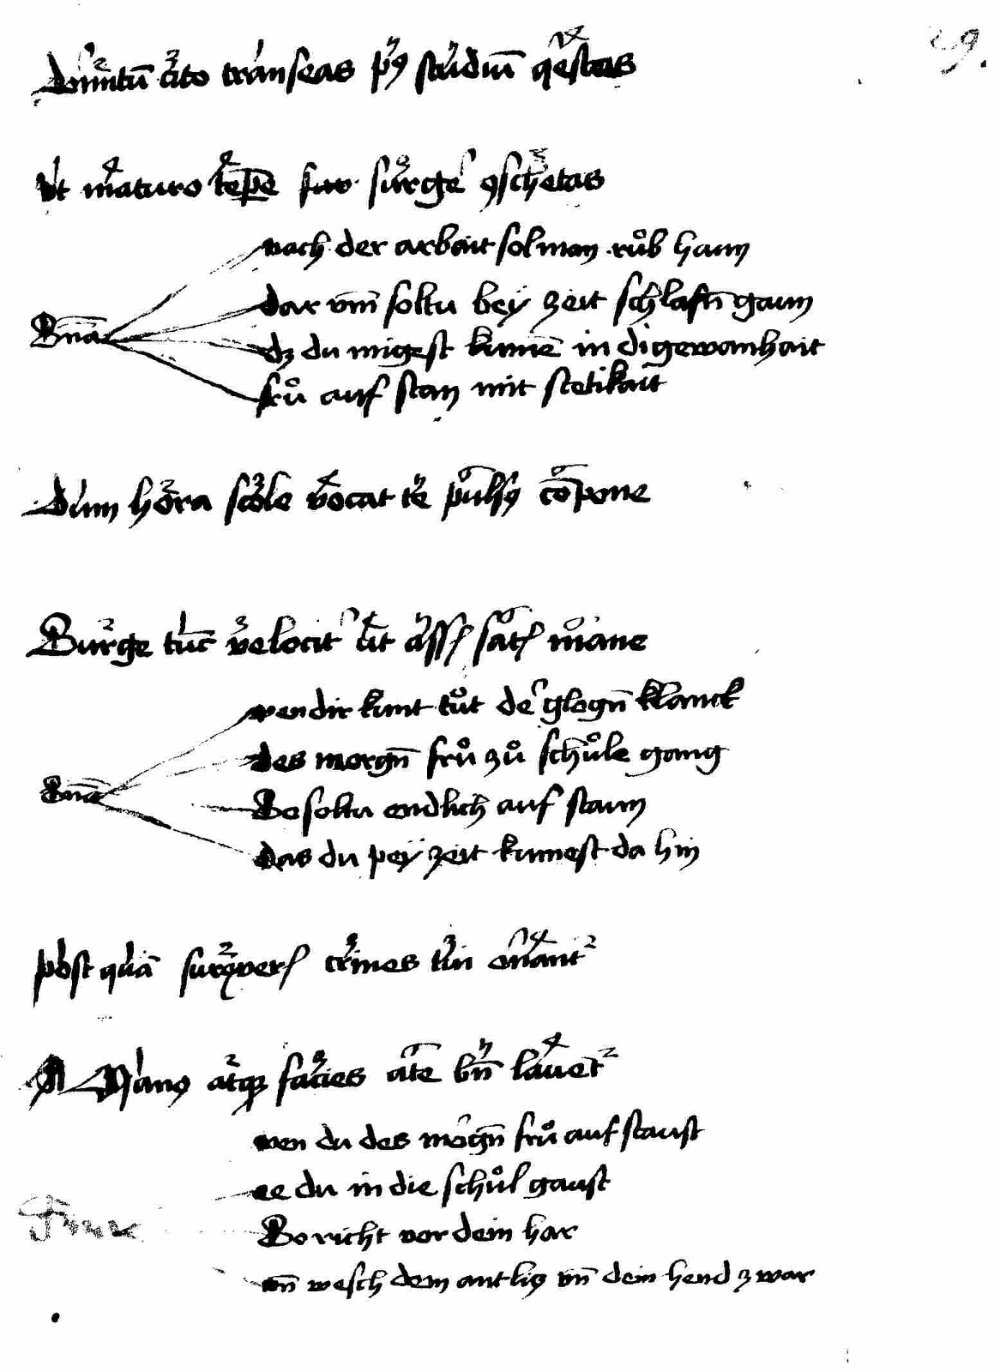 29.
cito transeas p9 studiu͞ questas
Ut maturo te͞pe sur surge͛ 9schetas
nach der arbait sol man růb haun
dar vm͞ soltu bey zeit schlafn͞ gaun
dz du migest kume͞ in di gewanhait
frů auf stan mit stetikait
Dum hora scole vocat te pulsu9 co͞pone
Surge tu͞c velocit͛ cit mane
wen dir kunt tůt de͛ glogn͞ klanck
des morgn͞ frů zů schůle gang
So soltu endlich auf staun
das du pey zeit kumest da hin
post qua͞ surrexeris crines
Man9 atq3 facies a͞te bn͞ lauet͛
wen du des morgn͞ frů auf staust
ee du in die schůl gaust
So richt vor dein har
vn͞ wesch dein antlig vn͞ dein hend zwar